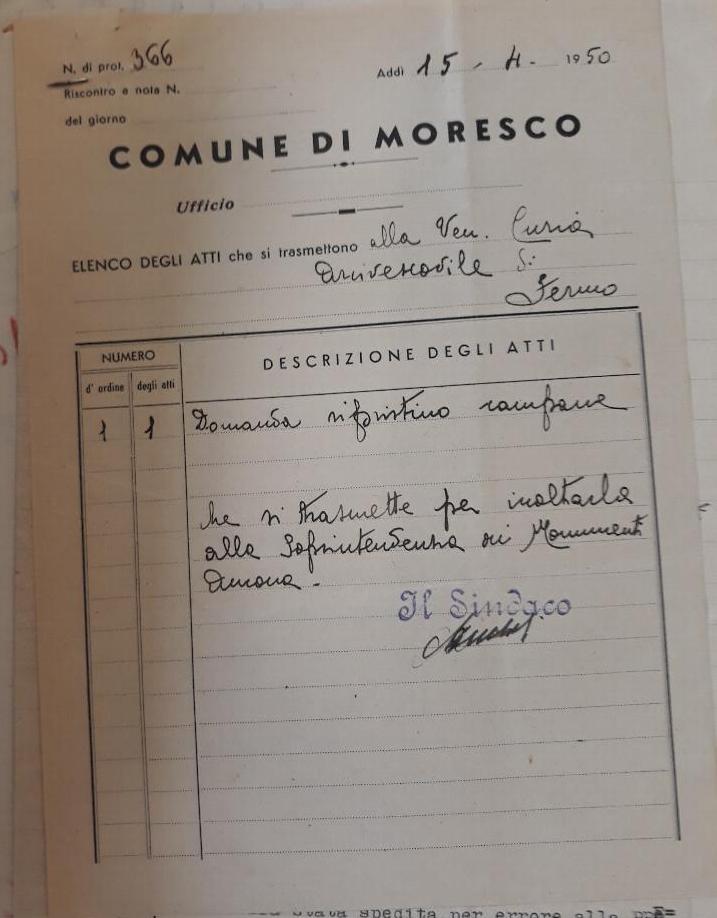 N. di prot. 366
Addì 15 - 4 - 1950
Riscontro a nota N.
del giorno
COMUNE DI MORESCO
Ufficio
ELENCO DEGLI ATTI che si trasmettono alla Ven. Curia
Arcivescovile di
Fermo
NUMERO
DESCRIZIONE DEGLI ATTI
d' ordine degli atti
1 1 Domanda ripristino campane
che si trasmette per inoltarla
alla Soprintendenza ai Monumenti
Ancona -
Il Sindaco
spedita per errore alle